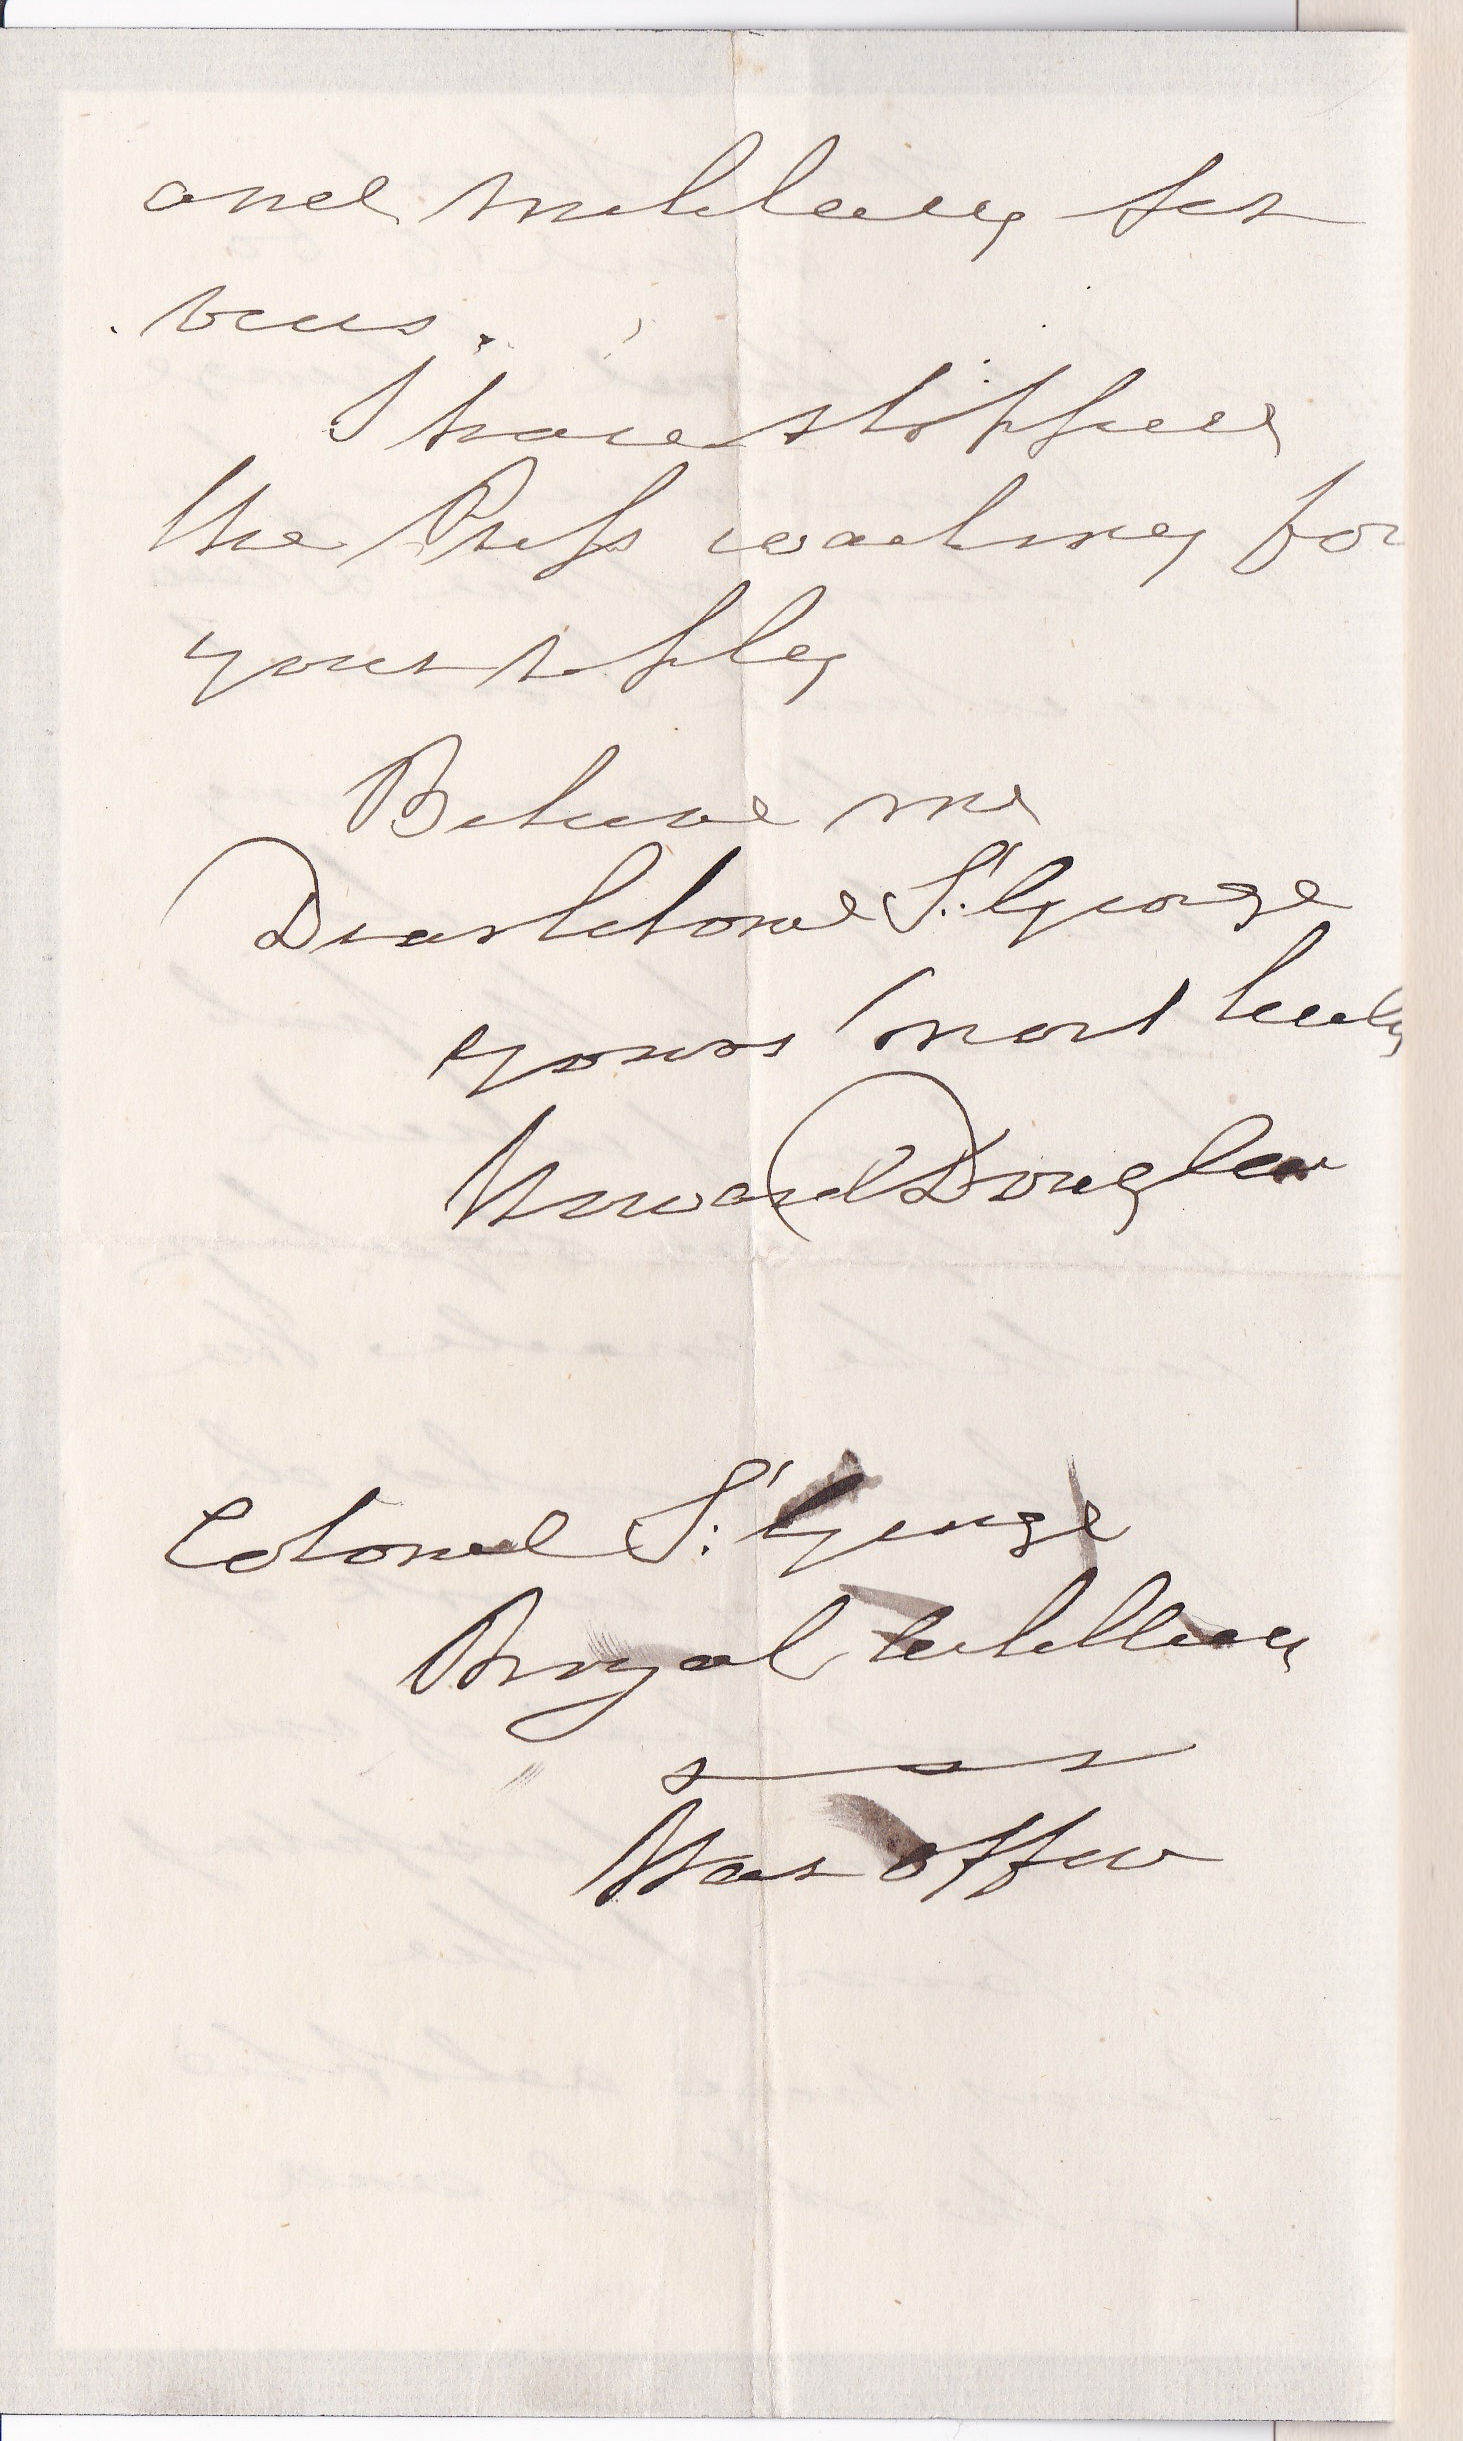 and military ser
vices.
I have stopped
the Press waiting for
your reply
Believe me
Dear Colonel St. George
yours most truly
Howard Douglas
Colonel St. George
Royal Artillery
War Office